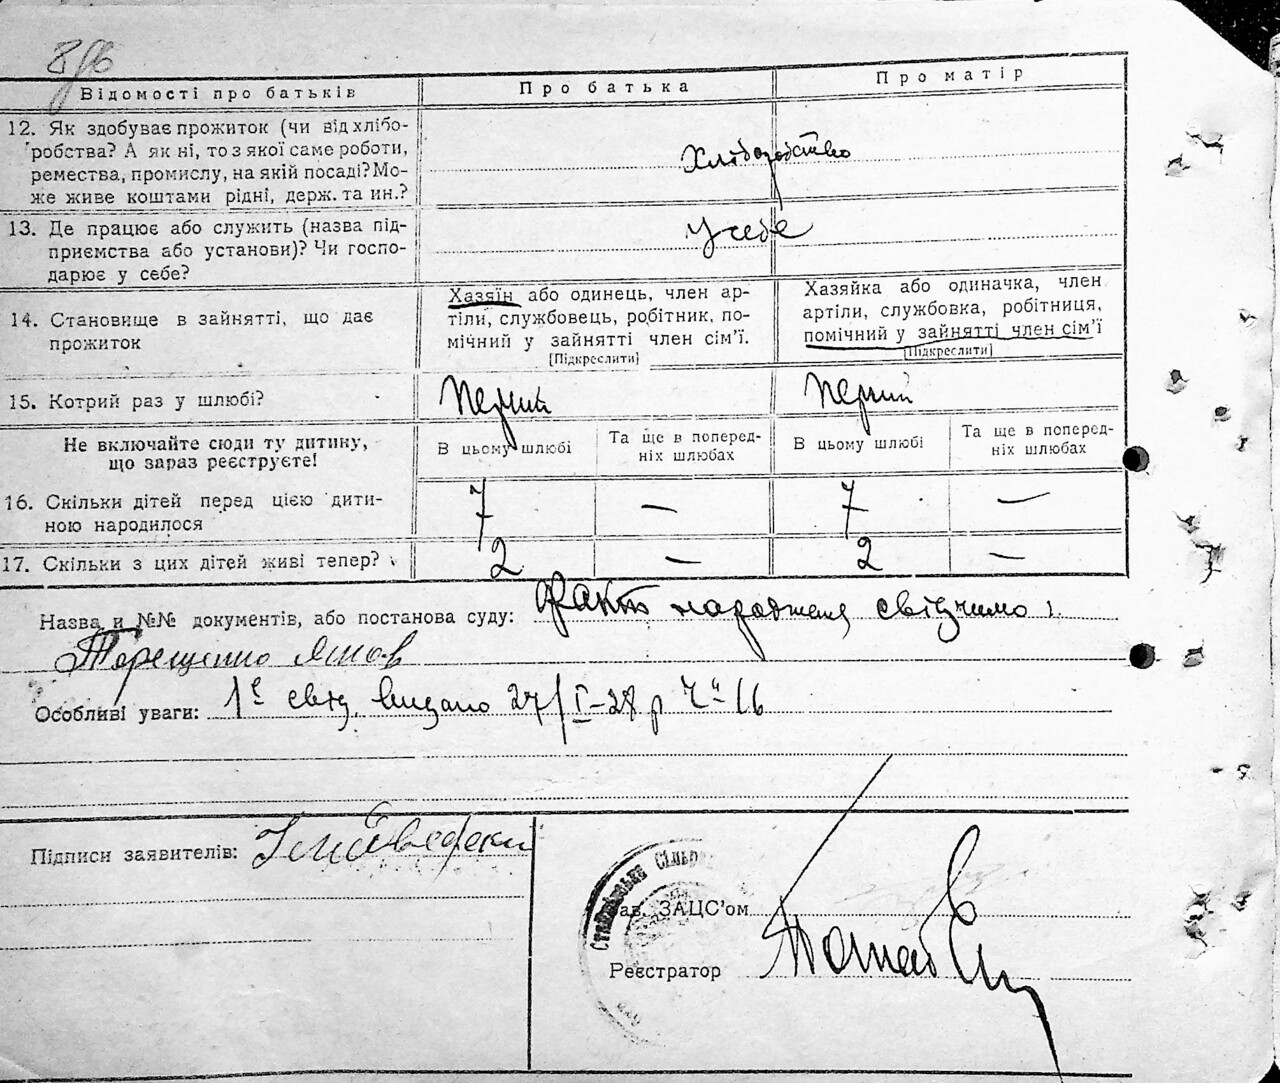 Відомості про батьків
Про батька
Про матір
12. Як здобуває прожиток (чи від хлібо-
робства? А як ні, то з якої саме роботи,
ремества, промислу, на якій посаді? Мо-
же живе коштами рідні, держ. та ин.?
Хліборобство
13. Де працює або служить (назва під-
приємства або установи)? Чи госпо-
дарює у себе?
У себе
14. Становище в зайнятті, що дає
прожиток
Хазяїн або одинець, член ар-
тіли, службовець, робітник, по-
мічний у зайнятті член сім'ї.
[Підкреслити]
Хазяйка або одиначка, член
артіли, службовка, робітниця,
помічний у зайнятті член сім'ї
[Підкреслити]
15. Котрий раз у шлюбі?
Перший
Перший
Не включайте сюди ту дитину,
що зараз реєструєте!
В цьому шлюбі
Та ще в поперед-
ніх шлюбах
В цьому шлюбі
Та ще в поперед-
ніх шлюбах
16. Скільки дітей перед цією дити-
ною народилося
7 — 7 —
17. Скільки з цих дітей живі тепер?
2 — 2 —
Назва и №№ документів, або постанова суду: Факт народження свідчимо
Терещенко Яков
Особливі уваги: 1е свід. видано 27/I-28 р Ч" 16
Підписи заявителів:
Зав. ЗАЦС'ом
Реєстратор